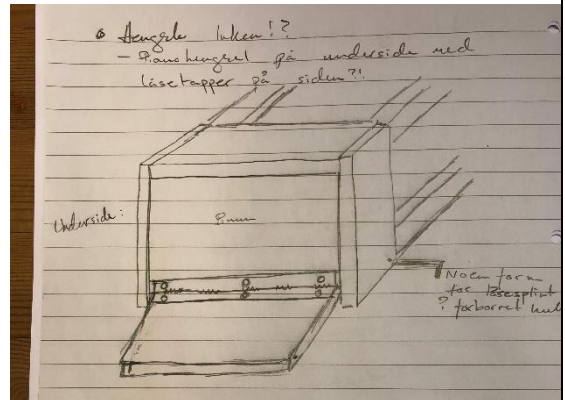 • Hengsle luken!?
- Pianohengsel på underside med
låsetapper på siden?!
Underside:
Noen form
for låsesplint
? forborret hull